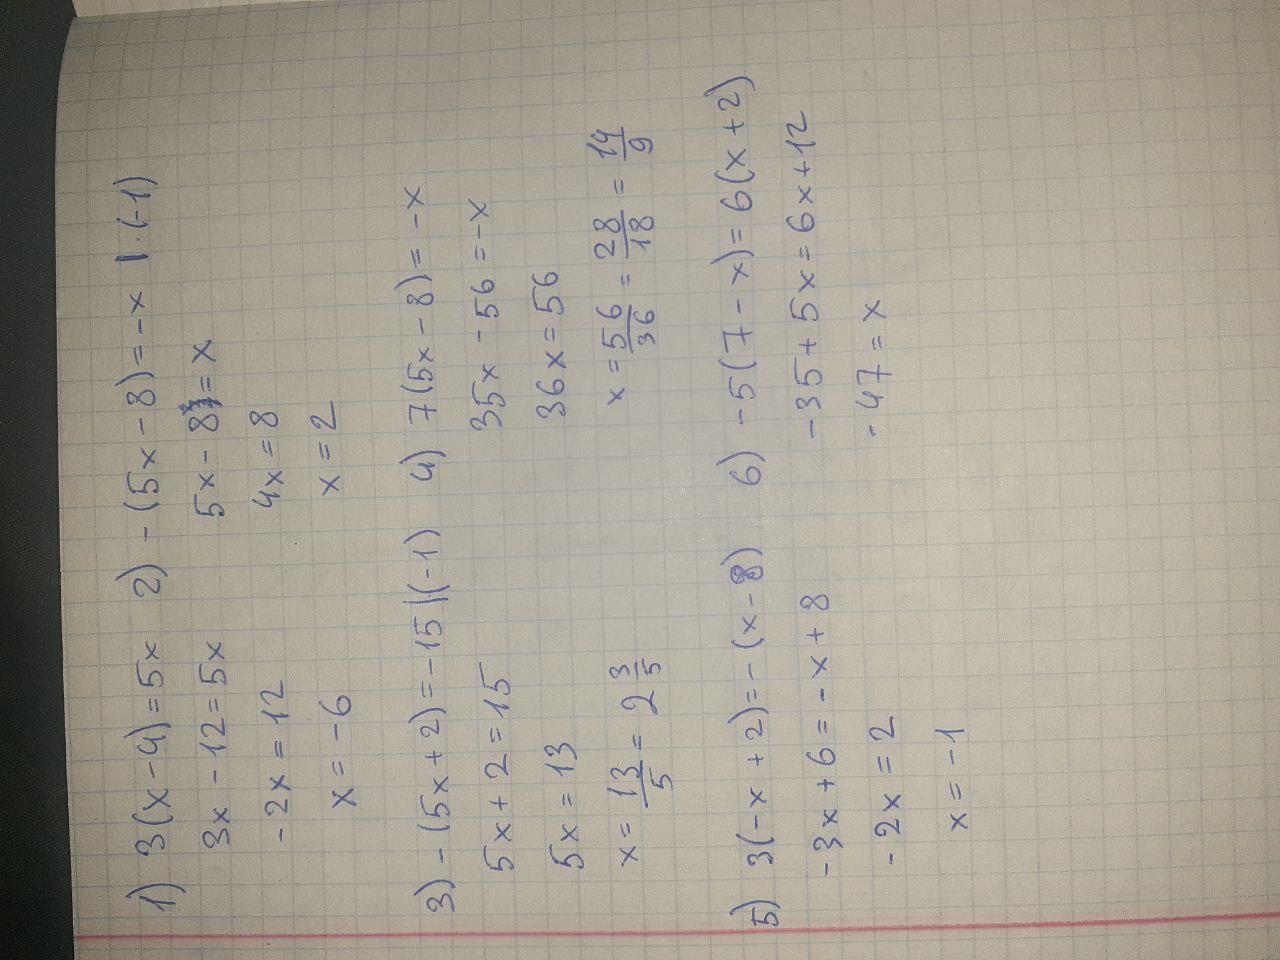 1) 3(x-4)=5x
3x-12=5x
-2x=12
x=-6
2) -(5x-8)=-x |·(-1)
5x-8=x
4x=8
x=2
3) -(5x+2)=-15|·(-1)
5x+2=15
5x=13
x=13/5=2 3/5
4) 7(5x-8)=-x
35x-56=-x
36x=56
x=56/36=28/18=14/9
5) 3(-x+2)=-(x-8)
-3x+6=-x+8
-2x=2
x=-1
6) -5(7-x)=6(x+2)
-35+5x=6x+12
-47=x